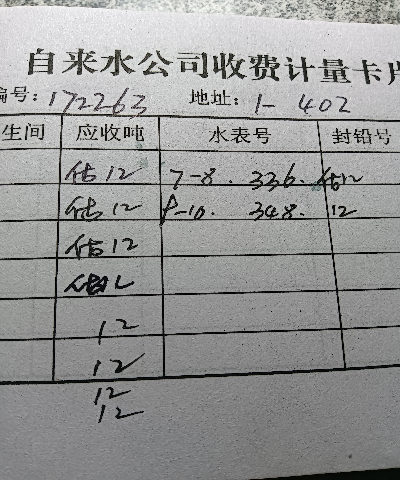 自来水公司收费计量卡片
编号: 172263 地址: 1-402
生间 应收吨 水表号 封铅号
估12 7-8. 336. 估12
估12 8-10. 348. 12
估12
估12
12
12
12
12